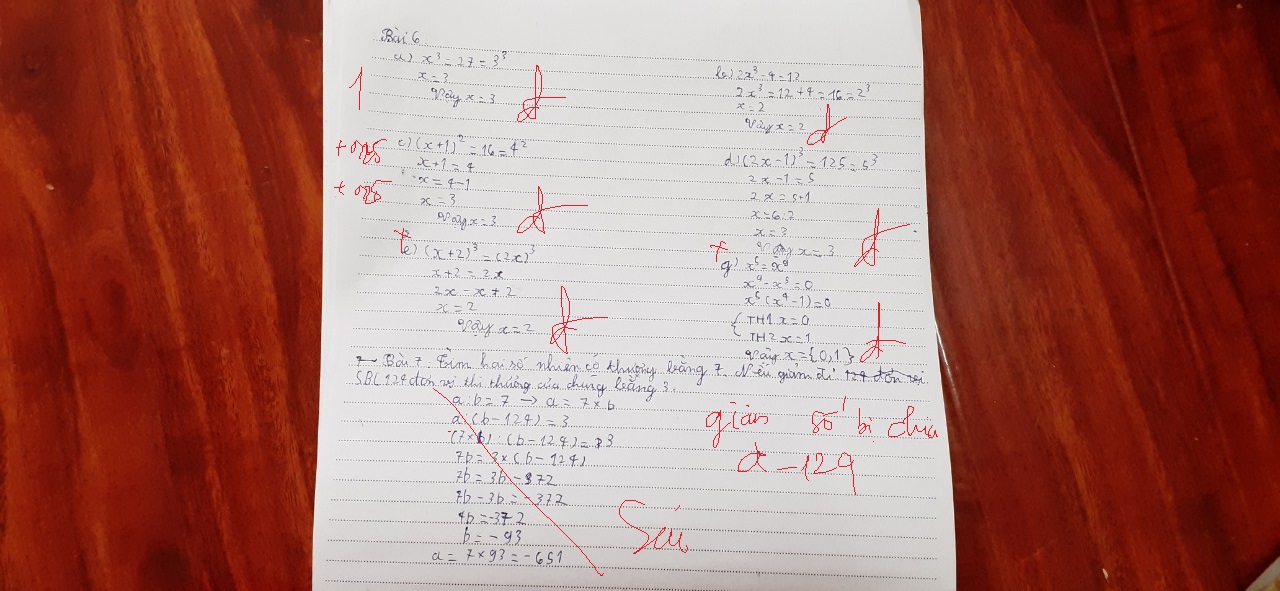 Bài 6
a) x³ = 27 = 3³
x = 3
Vậy x = 3
1
đ
b) 2x³ - 4 = 12
2x³ = 12 + 4 = 16 = 2³
x = 2
Vậy x = 2
đ
c) (x+1)² = 16 = 4²
x+1 = 4
x = 4-1
x = 3
Vậy x = 3
đ
d) (2x-1)³ = 125 = 5³
2x-1 = 5
2x = 5+1
x = 6:2
x = 3
Vậy x = 3
đ
e) (x+2)³ = (2x)³
x+2 = 2x
2x - x + 2
x = 2
Vậy x = 2
đ
g)
x⁵ (x⁴-1) = 0
TH1 x = 0
TH2 x = 1
Vậy x = {0,1}
đ
Bài 7: Tìm hai số nhiên có thương bằng 7. Nếu giảm đi 124 đơn vị
SBC 124 đơn vị thì thương của chúng bằng 3.
a : b = 7 → a = 7 × b
a : (b - 124) = 3
(7×b) : (b - 124) = 3
7b = 3×(b - 124)
7b = 3b - 372
7b - 3b = -372
4b = -372
b = -93
a = 7 × 93 = -651
giảm số bị chia
a - 124
Sai